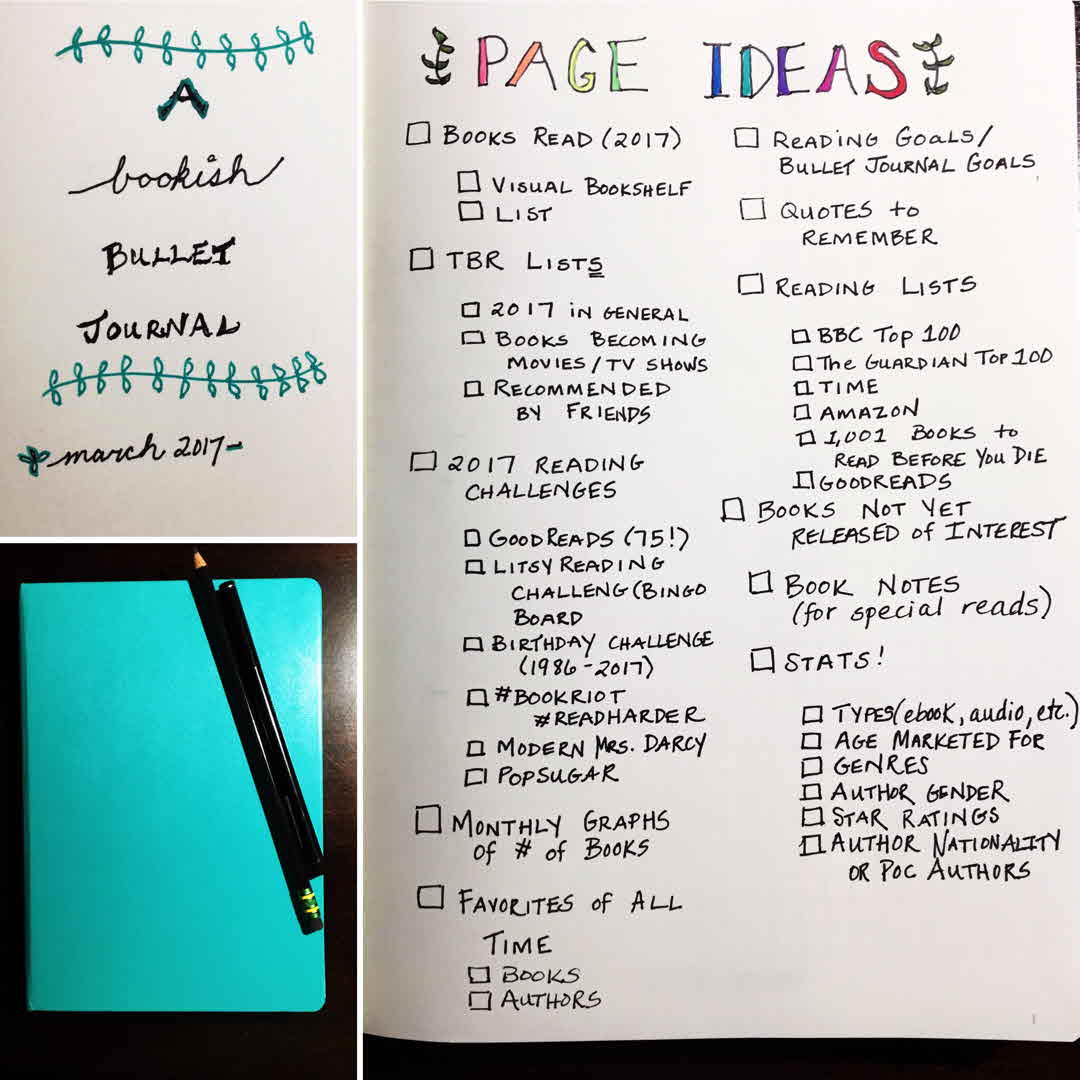 A
bookish
BULLET
JOURNAL
march 2017-
PAGE IDEAS
BOOKS READ (2017)
VISUAL BOOKSHELF
LIST
TBR LISTS
2017 IN GENERAL
BOOKS BECOMING
MOVIES/TV SHOWS
RECOMMENDED
BY FRIENDS
2017 READING
CHALLENGES
GOODREADS (75!)
LITSY READING
CHALLENG(BINGO
BOARD
BIRTHDAY CHALLENGE
(1986-2017)
#BOOKRIOT
#READHARDER
MODERN MRS. DARCY
POPSUGAR
MONTHLY GRAPHS
Of # of BOOKS
FAVORITES of ALL
TIME
BOOKS
AUTHORS
READING GOALS/
BULLET JOURNAL GOALS
QUOTES to
REMEMBER
READING LISTS
BBC TOP 100
The GUARDIAN TOP 100
TIME
AMAZON
1,001 BOOKS to
READ BEFORE YOU DIE
GOODREADS
BOOKS NOT YET
RELEASED of INTEREST
BOOK NOTES
(for special reads)
STATS!
TYPES(ebook, audio, etc.)
AGE MARKETED FOR
GENRES
AUTHOR GENDER
STAR RATINGS
AUTHOR NATIONALITY
OR POC AUTHORS
1